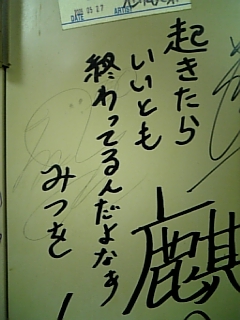 起きたら
いいとも
終わってるんだよなぁ
みつを
麒
DATE
ARTIST